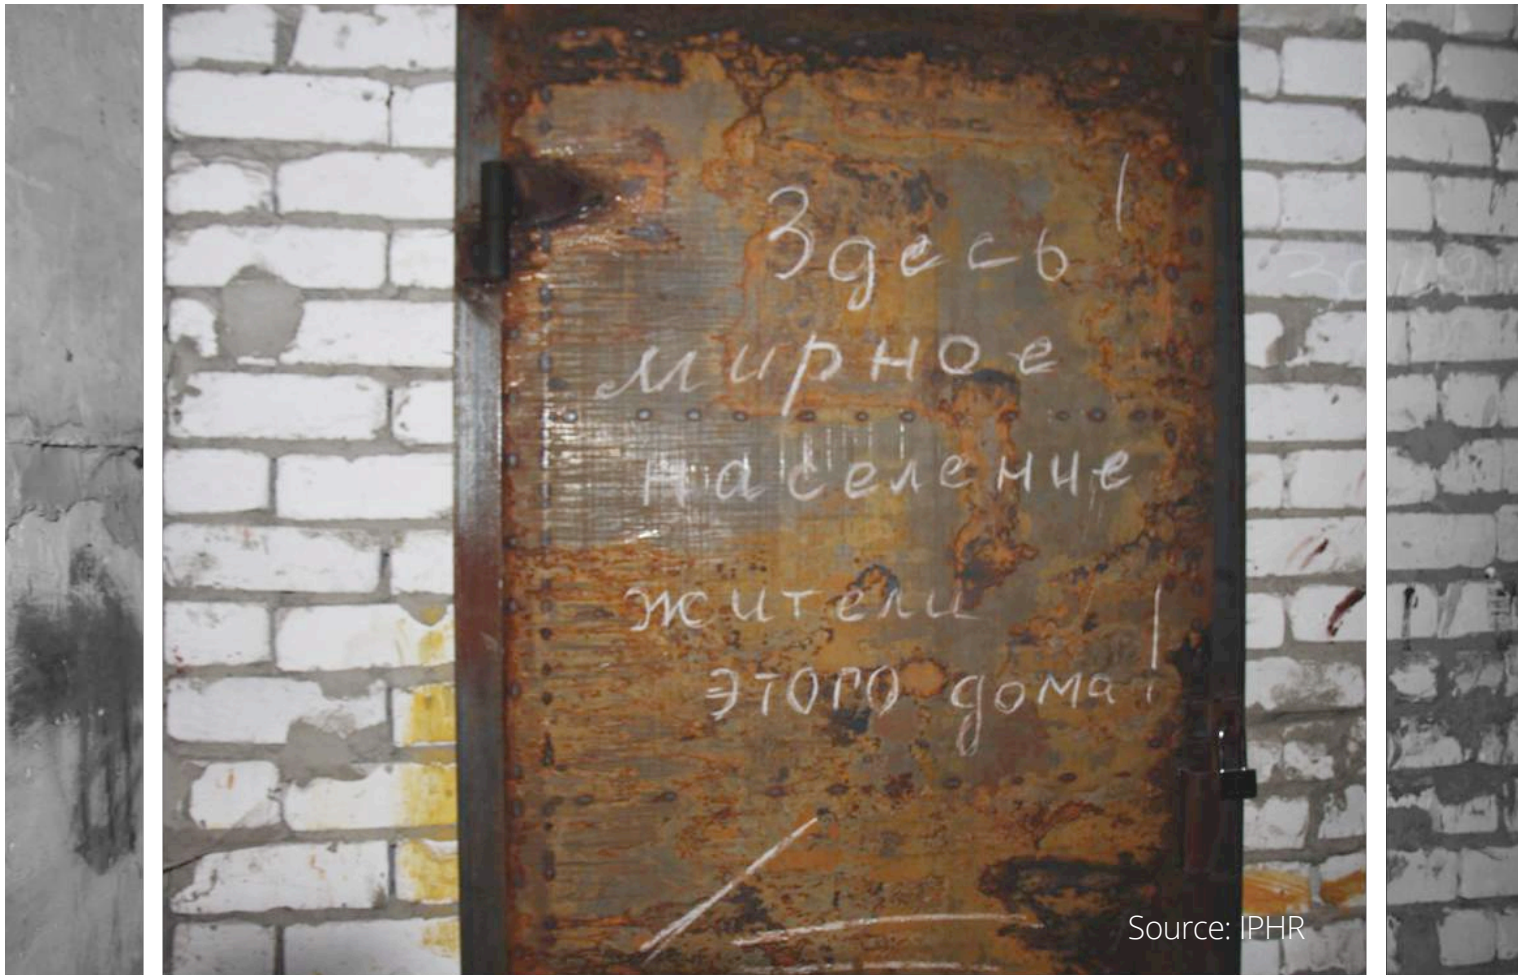 Здесь
мирное
население
жители
этого дома!
Source: IPHR